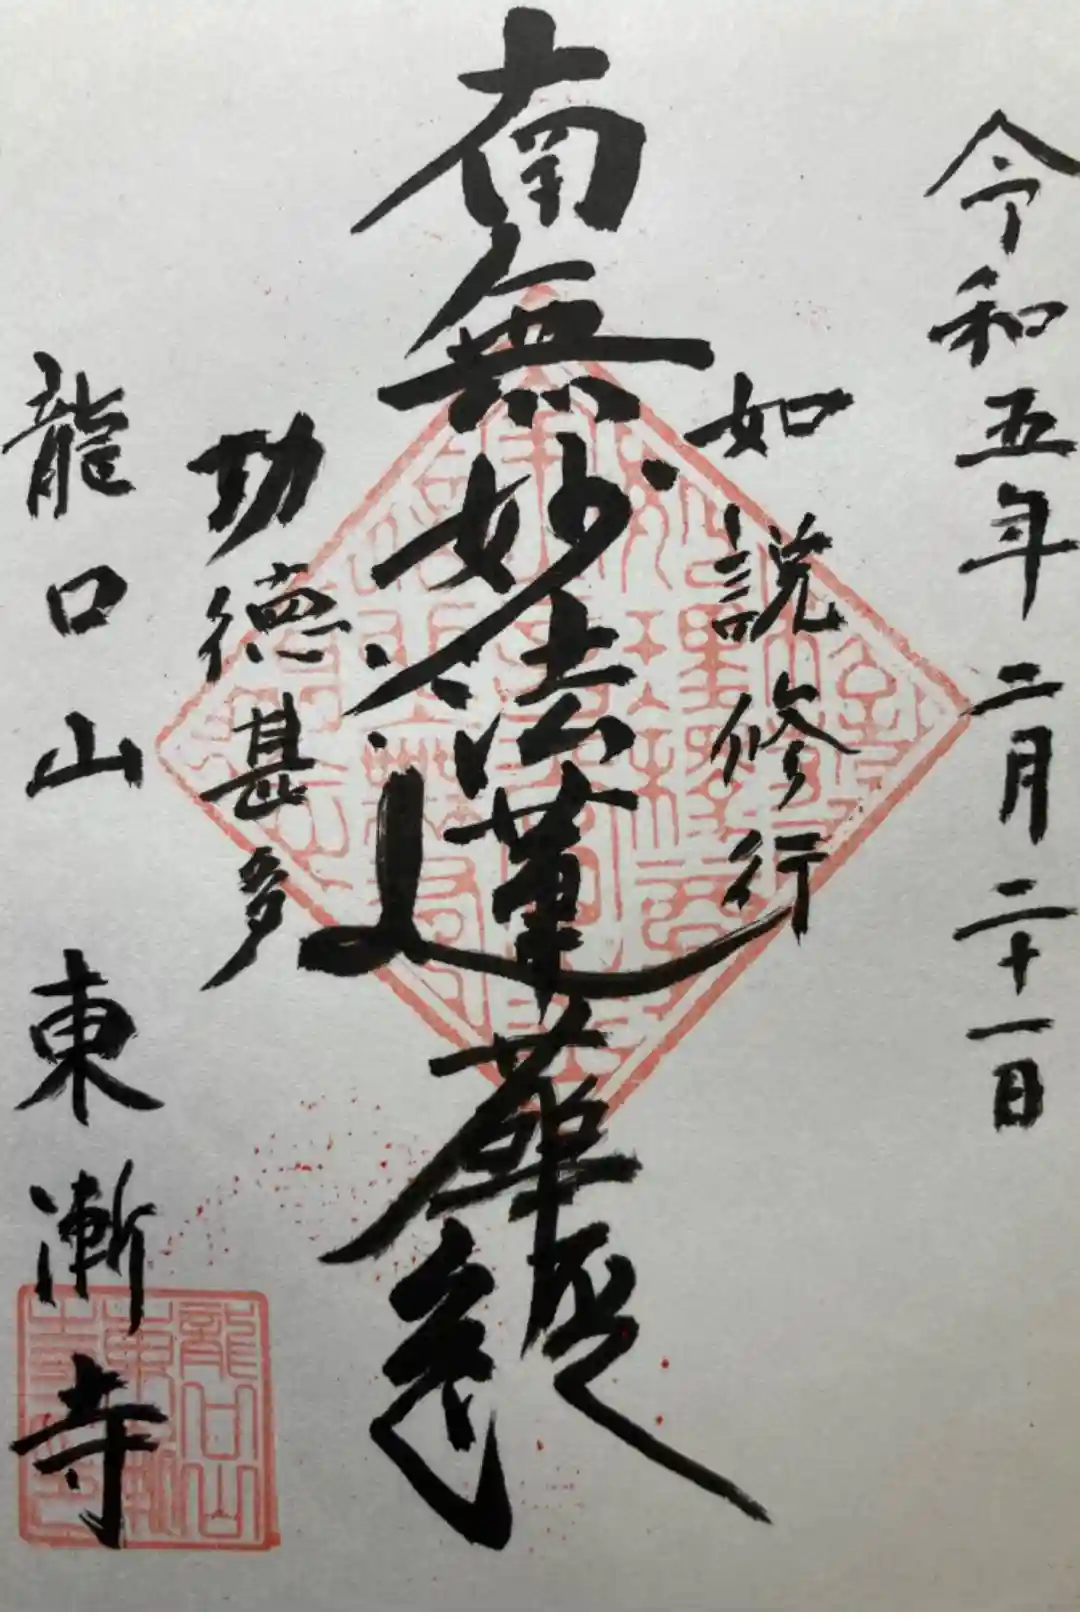 令和五年二月二十一日
如説修行
南無妙法蓮華経
功徳甚多
龍口山東漸寺